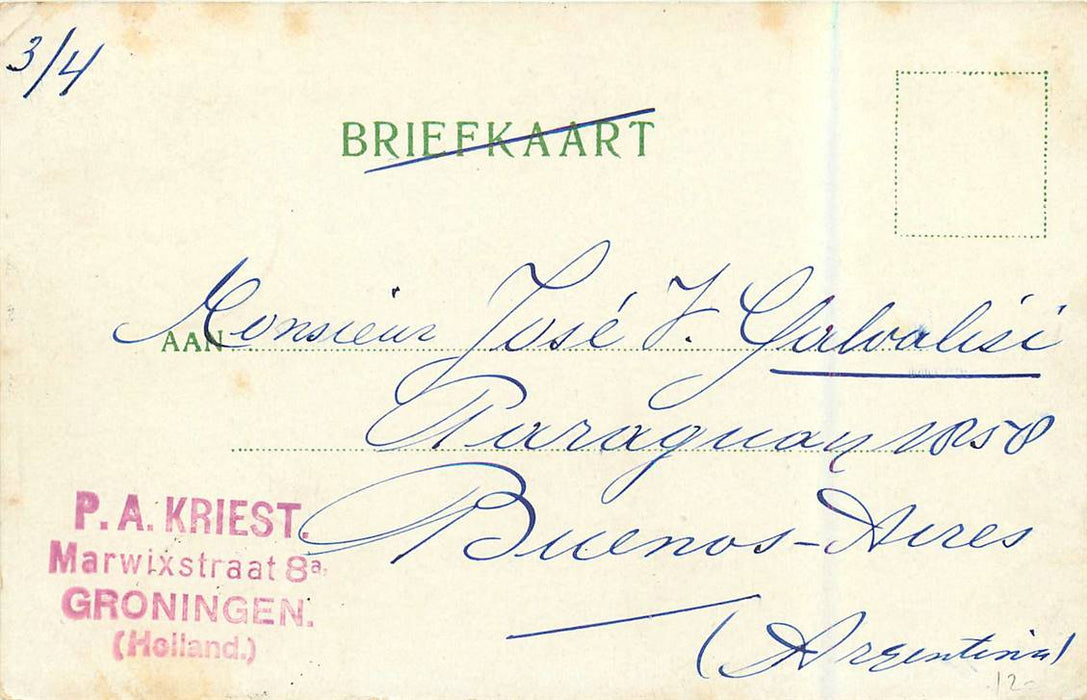 3/4
BRIEFKAART
AAN Monsieur José J. Galvalisi
Paraguay 1858
Buenos-Aires
(Argentina)
P. A. KRIEST.
Marwixstraat 8a,
GRONINGEN.
(Holland.)
12-